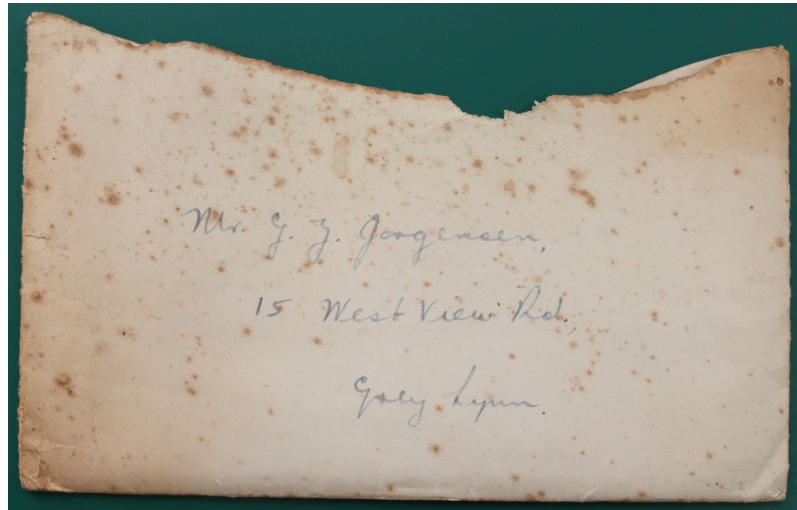 Mr. G. Y. Jorgensen,
15 West View Rd.,
Grey Lynn.